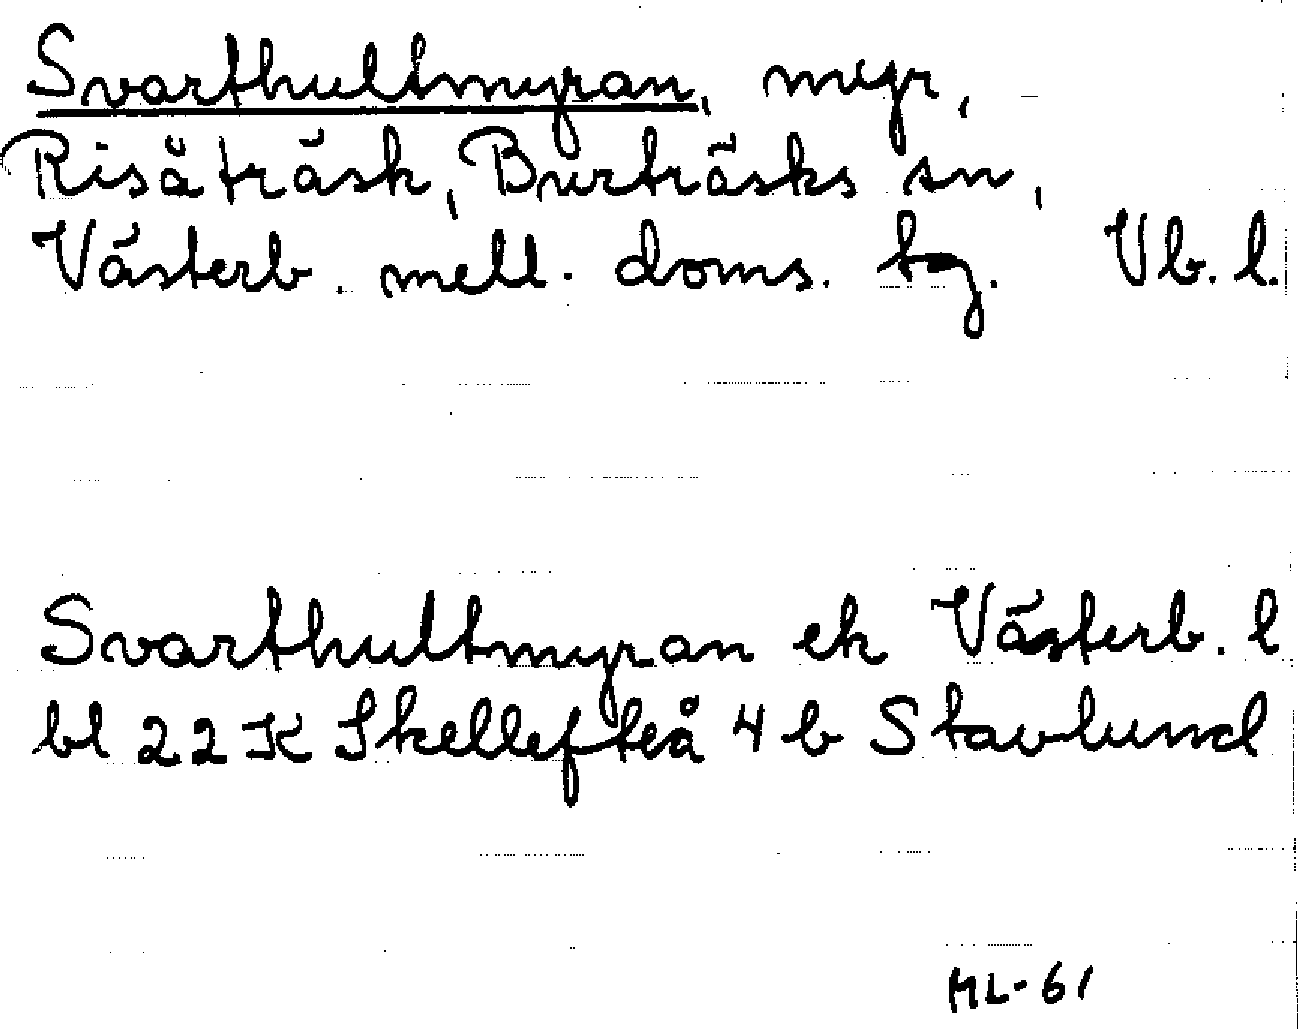 Svarthultmyran, myr,
Risåträsk, Burträsks sn,
Västerb. mell. doms. tg. Vb. l.
Svarthultmyran ek Västerb. l
bl 22 K Skellefteå 4 b Stavlund
ML-61